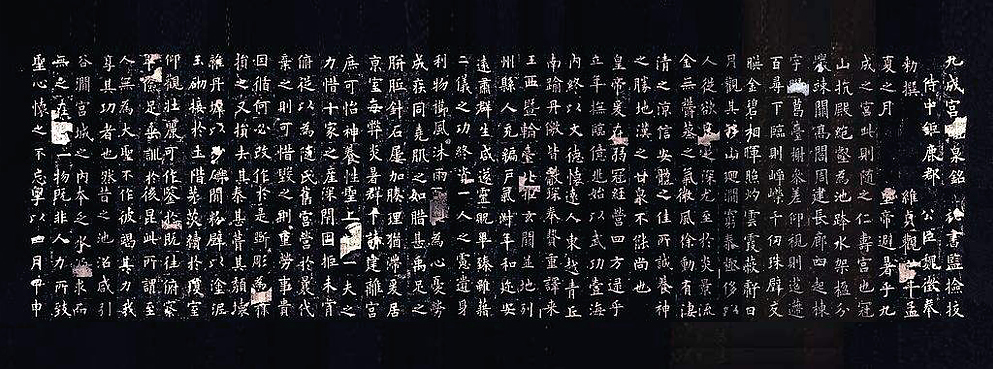 九成宮泉銘 書監檢校
侍中鉅鹿郡公臣魏徵奉
勑撰 維貞觀年孟
夏之月帝避暑乎九
成之宮此則隨之仁壽宮也冠
山抗殿絕壑為池跨水架楹分
巖竦闕高閣周建長廊四起棟
宇膠葛臺榭參差仰視則迢遰
百尋下臨則崢嶸千仞珠璧交
暎金碧相暉照灼雲霞蔽虧日
月觀其移山迴澗窮泰極侈以
人從欲良足深尤至於炎景流
金無鬱蒸之氣微風徐動有淒
清之涼信安體之佳所誠養神
之勝地漢之甘泉不能尚也
皇帝爰在弱冠經營四方逮乎
立年撫臨億兆始以武功壹海
內終以文德懷遠人東越青丘
南踰丹儌皆獻琛奉贄重譯來
王西暨輪臺北拒玄闕並地列
州縣人充編戶氣淑年和迩安
遠肅群生咸遂靈貺畢臻雖藉
二儀之功終資一人之慮遺身
利物櫛風沐雨為心憂勞
成疾同堯肌之如腊甚禹足之
胼胝針石屢加腠理猶滯爰居
京室每弊炎暑群下請建離宮
庶可怡神養性聖上一夫之
力惜十家之產深閉固拒未肯
俯從以為隨氏舊宮營於曩代
棄之則可惜毀之則重勞事貴
因循何必改作於是斲彫為樸
損之又損去其泰甚葺其頹壞
雜丹墀以沙礫間粉壁以塗泥
玉砌接於土階茅茨續於瓊室
仰觀壯麗可作鑒於既往俯察
卑儉足垂訓於後昆此所謂至
人無為大聖不作彼竭其力我
享其功者也然昔之池沼咸引
谷澗宮城之內本乏水源求而
無之在一物既非人力所致
聖心懷之不忘粵以四月甲申